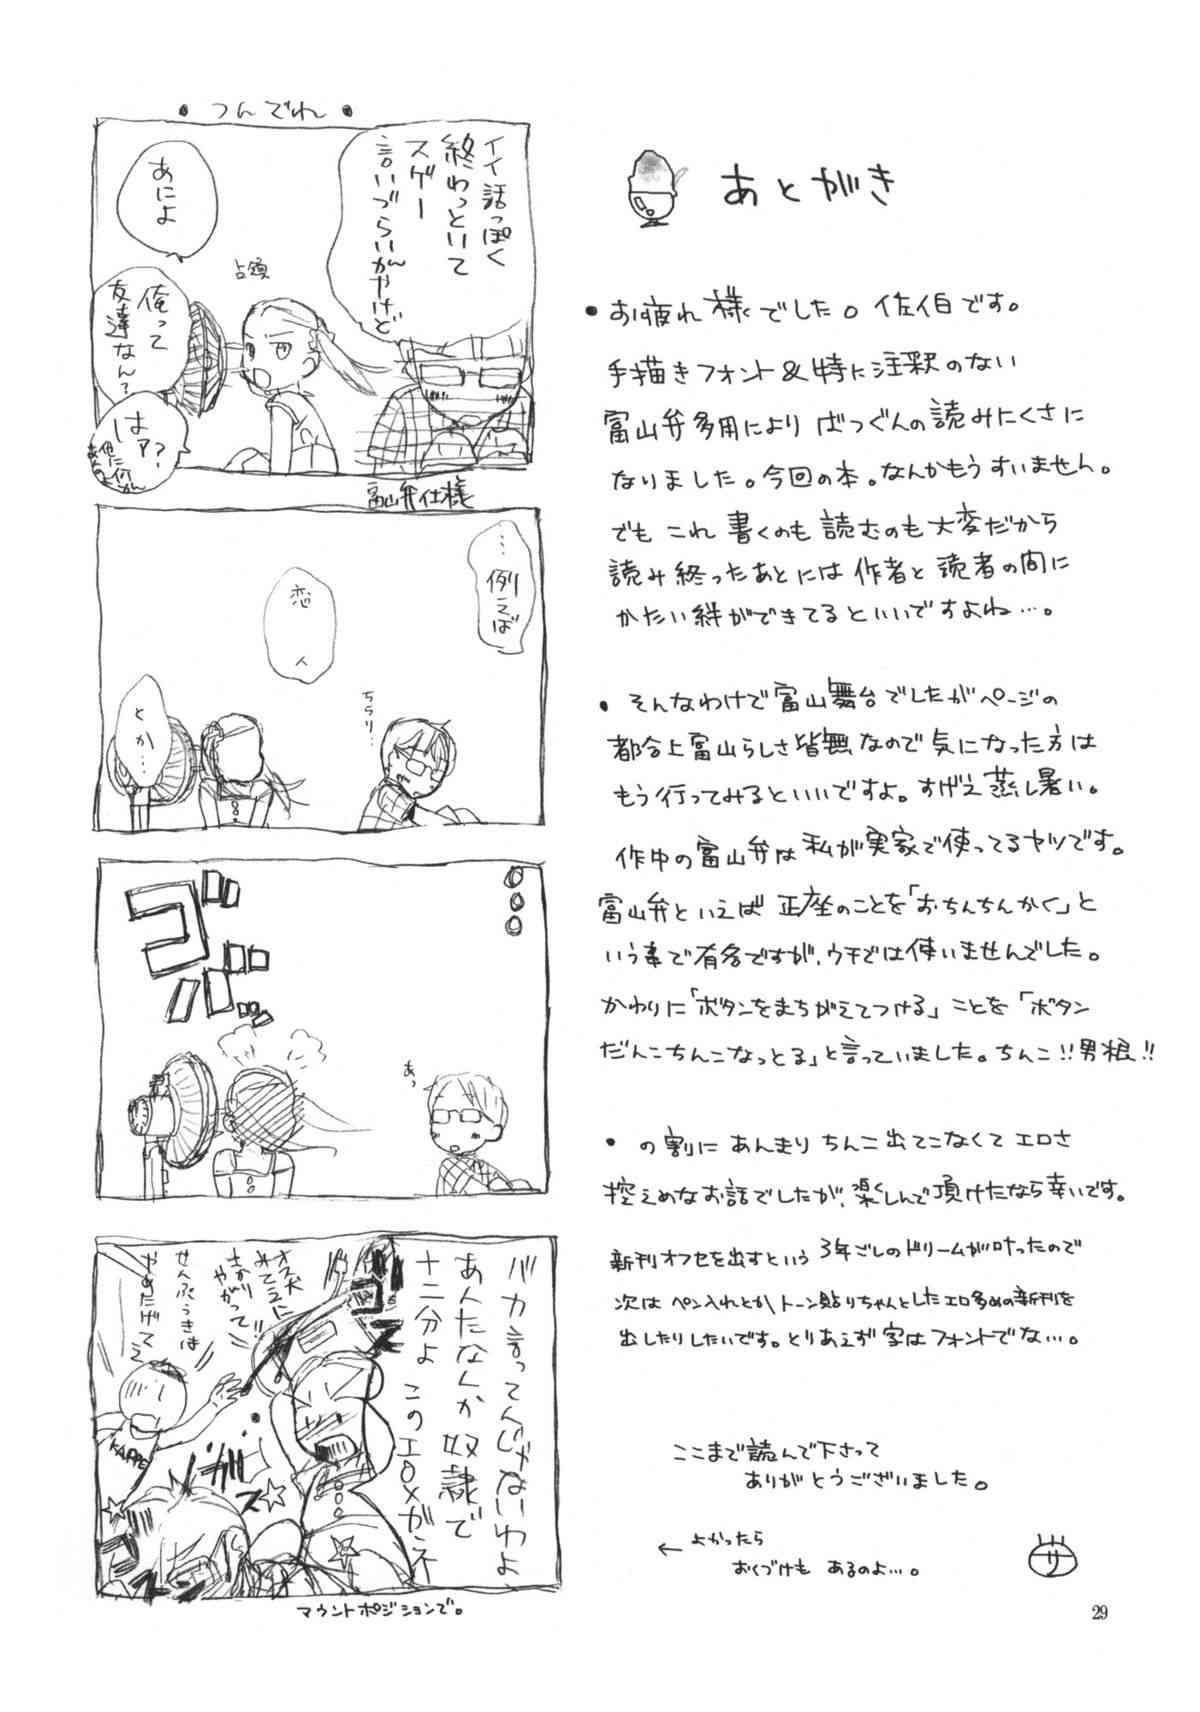 あとがき
・お疲れ様でした。佐伯です。
手描きフォント&特に注釈のない
富山弁多用により ばつぐんの読みにくさに
なりました。今回の本。なんかもうすいません。
でも これ 書くのも 読むのも 大変だから
読み終ったあとには 作者と 読者の間に
かたい絆ができてるといいですよね…。
・そんなわけで富山舞台でしたがページの
都合上富山らしさ皆無なので気になった方は
もう行ってみるといいですよ。すげえ蒸し暑い。
作中の富山弁は私が実家で使ってるヤツです。
富山弁といえば 正座のことを「おちんちんかく」と
いう事で有名ですが、ウチでは使いませんでした。
かわりに「ボタンをまちがえてつける」ことを「ボタン
だんこちんこなっとる」と言っていました。ちんこ!!男根!!
・の割に あんまり ちんこ出てこなくて エロさ
控えめなお話でしたが、楽しんで頂けたなら幸いです。
新刊オフセを出すという 3年ごしのドリームが叶ったので
次は ペン入れとか トーン貼りちゃんとしたエロ多めの新刊を
出したりしたいです。とりあえず 字はフォントでな…。
ここまで読んで下さって
ありがとうございました。
← よかったら
おくづけも あるのよ…。
サ
・つんでれ・
イイ話っぽく
終わっといて
スゲー
言いづらいがんやけど
あによ
占領
俺って
友達なん?
はァ?
他に何が
あるのよ
富山弁仕様
…例えば
恋人
とか…
ちらり…
ゴ
バ
あっ
バカ言ってんじゃないわよ
あんたなんか奴隷で
十二分よ このエロメガネ
ドゴス
オス犬
みてェに
さかり
やがって!!
せんぷうきは
やめたげてェ
KAPPE
ガス
マウントポジションで。
29